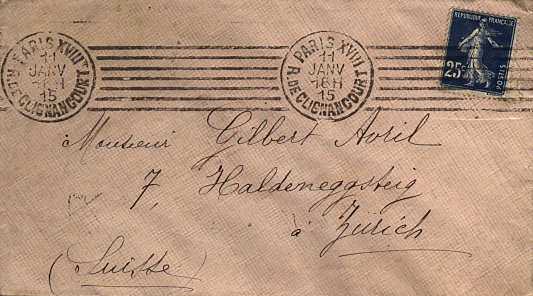 PARIS XVIII
11
JANV
15
R. DE CLIGNANCOURT
PARIS XVIII
11
JANV
15
R. DE CLIGNANCOURT
REPUBLIQUE FRANÇAISE
25c
POSTES
Monsieur Gilbert Avril
7, Haldeneggsteig
à Zürich
(Suisse)